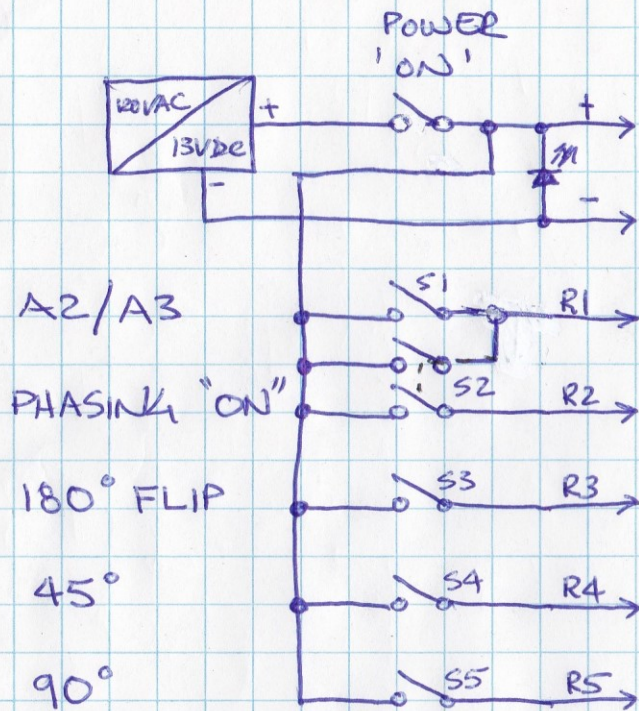 POWER
'ON'
120VAC
13VDC
+
-
+
-
A2/A3
S1
R1
PHASING "ON"
S2
R2
180° FLIP
S3
R3
45°
S4
R4
90°
S5
R5